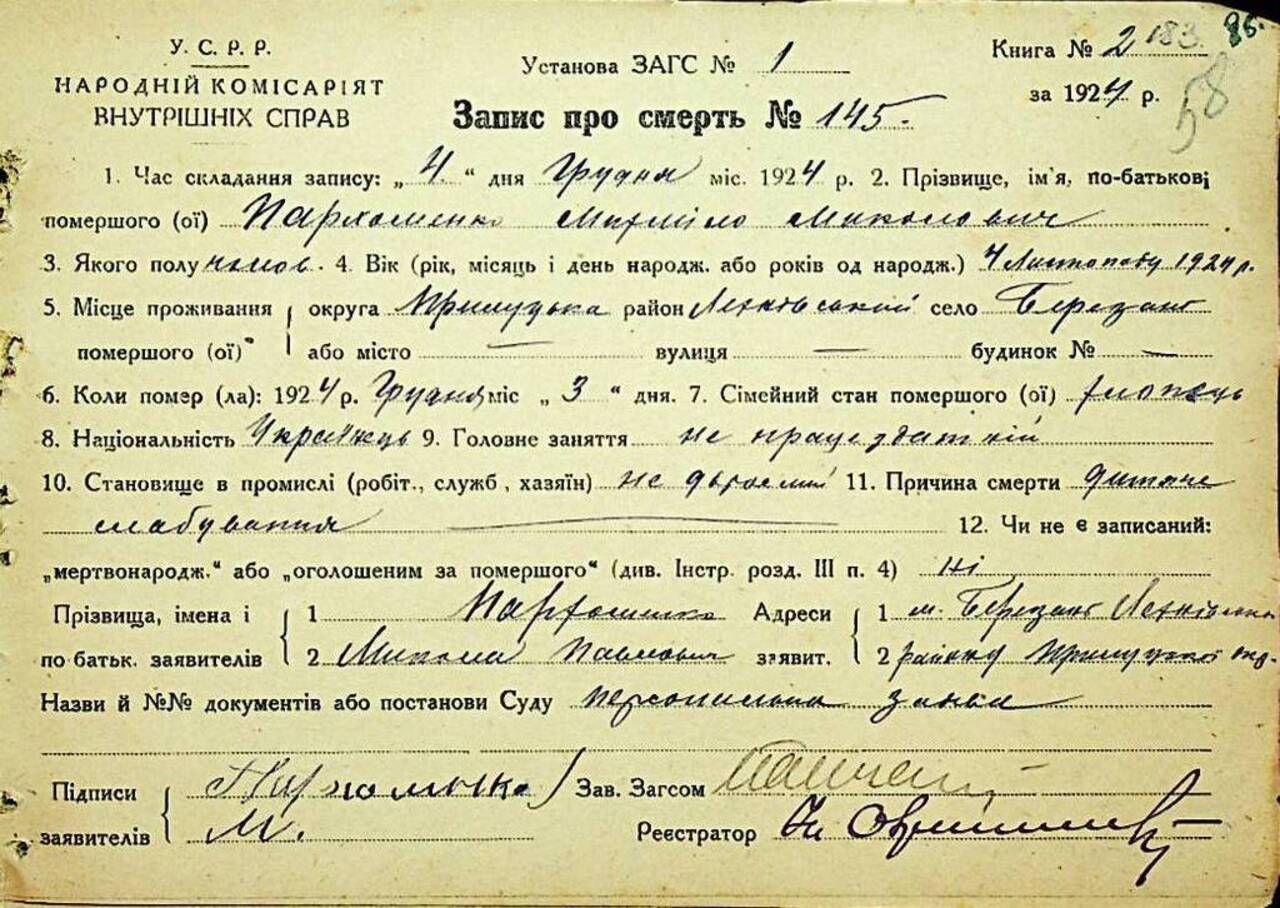 У. С. Р. Р.
НАРОДНІЙ КОМІСАРІЯТ
ВНУТРІШНІХ СПРАВ
Установа ЗАГС № 1
Книга № 2 183. 86.
за 1924 р. 58
Запис про смерть № 145.
1. Час складання запису: „ 4. “ дня Грудня міс. 1924 р. 2. Прізвище, ім'я, по-батькові
помершого (ої) Пархоменко Михайло Миколович
3. Якого полу чолов. 4. Вік (рік, місяць і день народж. або років од народж.) 4 Листопаду 1924 р.
5. Місце проживання округа Прилуцька район село Березань
помершого (ої) або місто — вулиця — будинок № —
6. Коли помер (ла): 1924 р. Грудня міс „ 3 “ дня. 7. Сімейний стан помершого (ої) хлопець
8. Національність Українець 9. Головне заняття не працездатній
10. Становище в промислі (робіт., служб , хазяїн) не 11. Причина смерти дитяче
слабування 12. Чи не є записаний:
„мертвонародж.“ або „оголошеним за помершого“ (див. Інстр. розд. III п. 4) ні
Прізвища, імена і 1 Пархоменко Адреси 1 м. Березань
по батьк. заявителів 2 Микола Павлович заявит. 2 району Прилуцької окр.
Назви й №№ документів або постанови Суду персональна заява
Підписи Пархоменко Зав. Загсом
заявителів М. Реєстратор